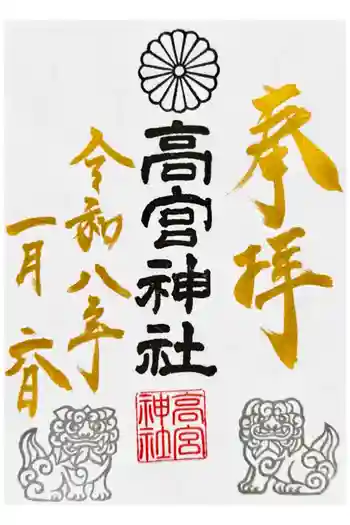 奉拝
高宮神社
高宮神社
令和八年
一月六日